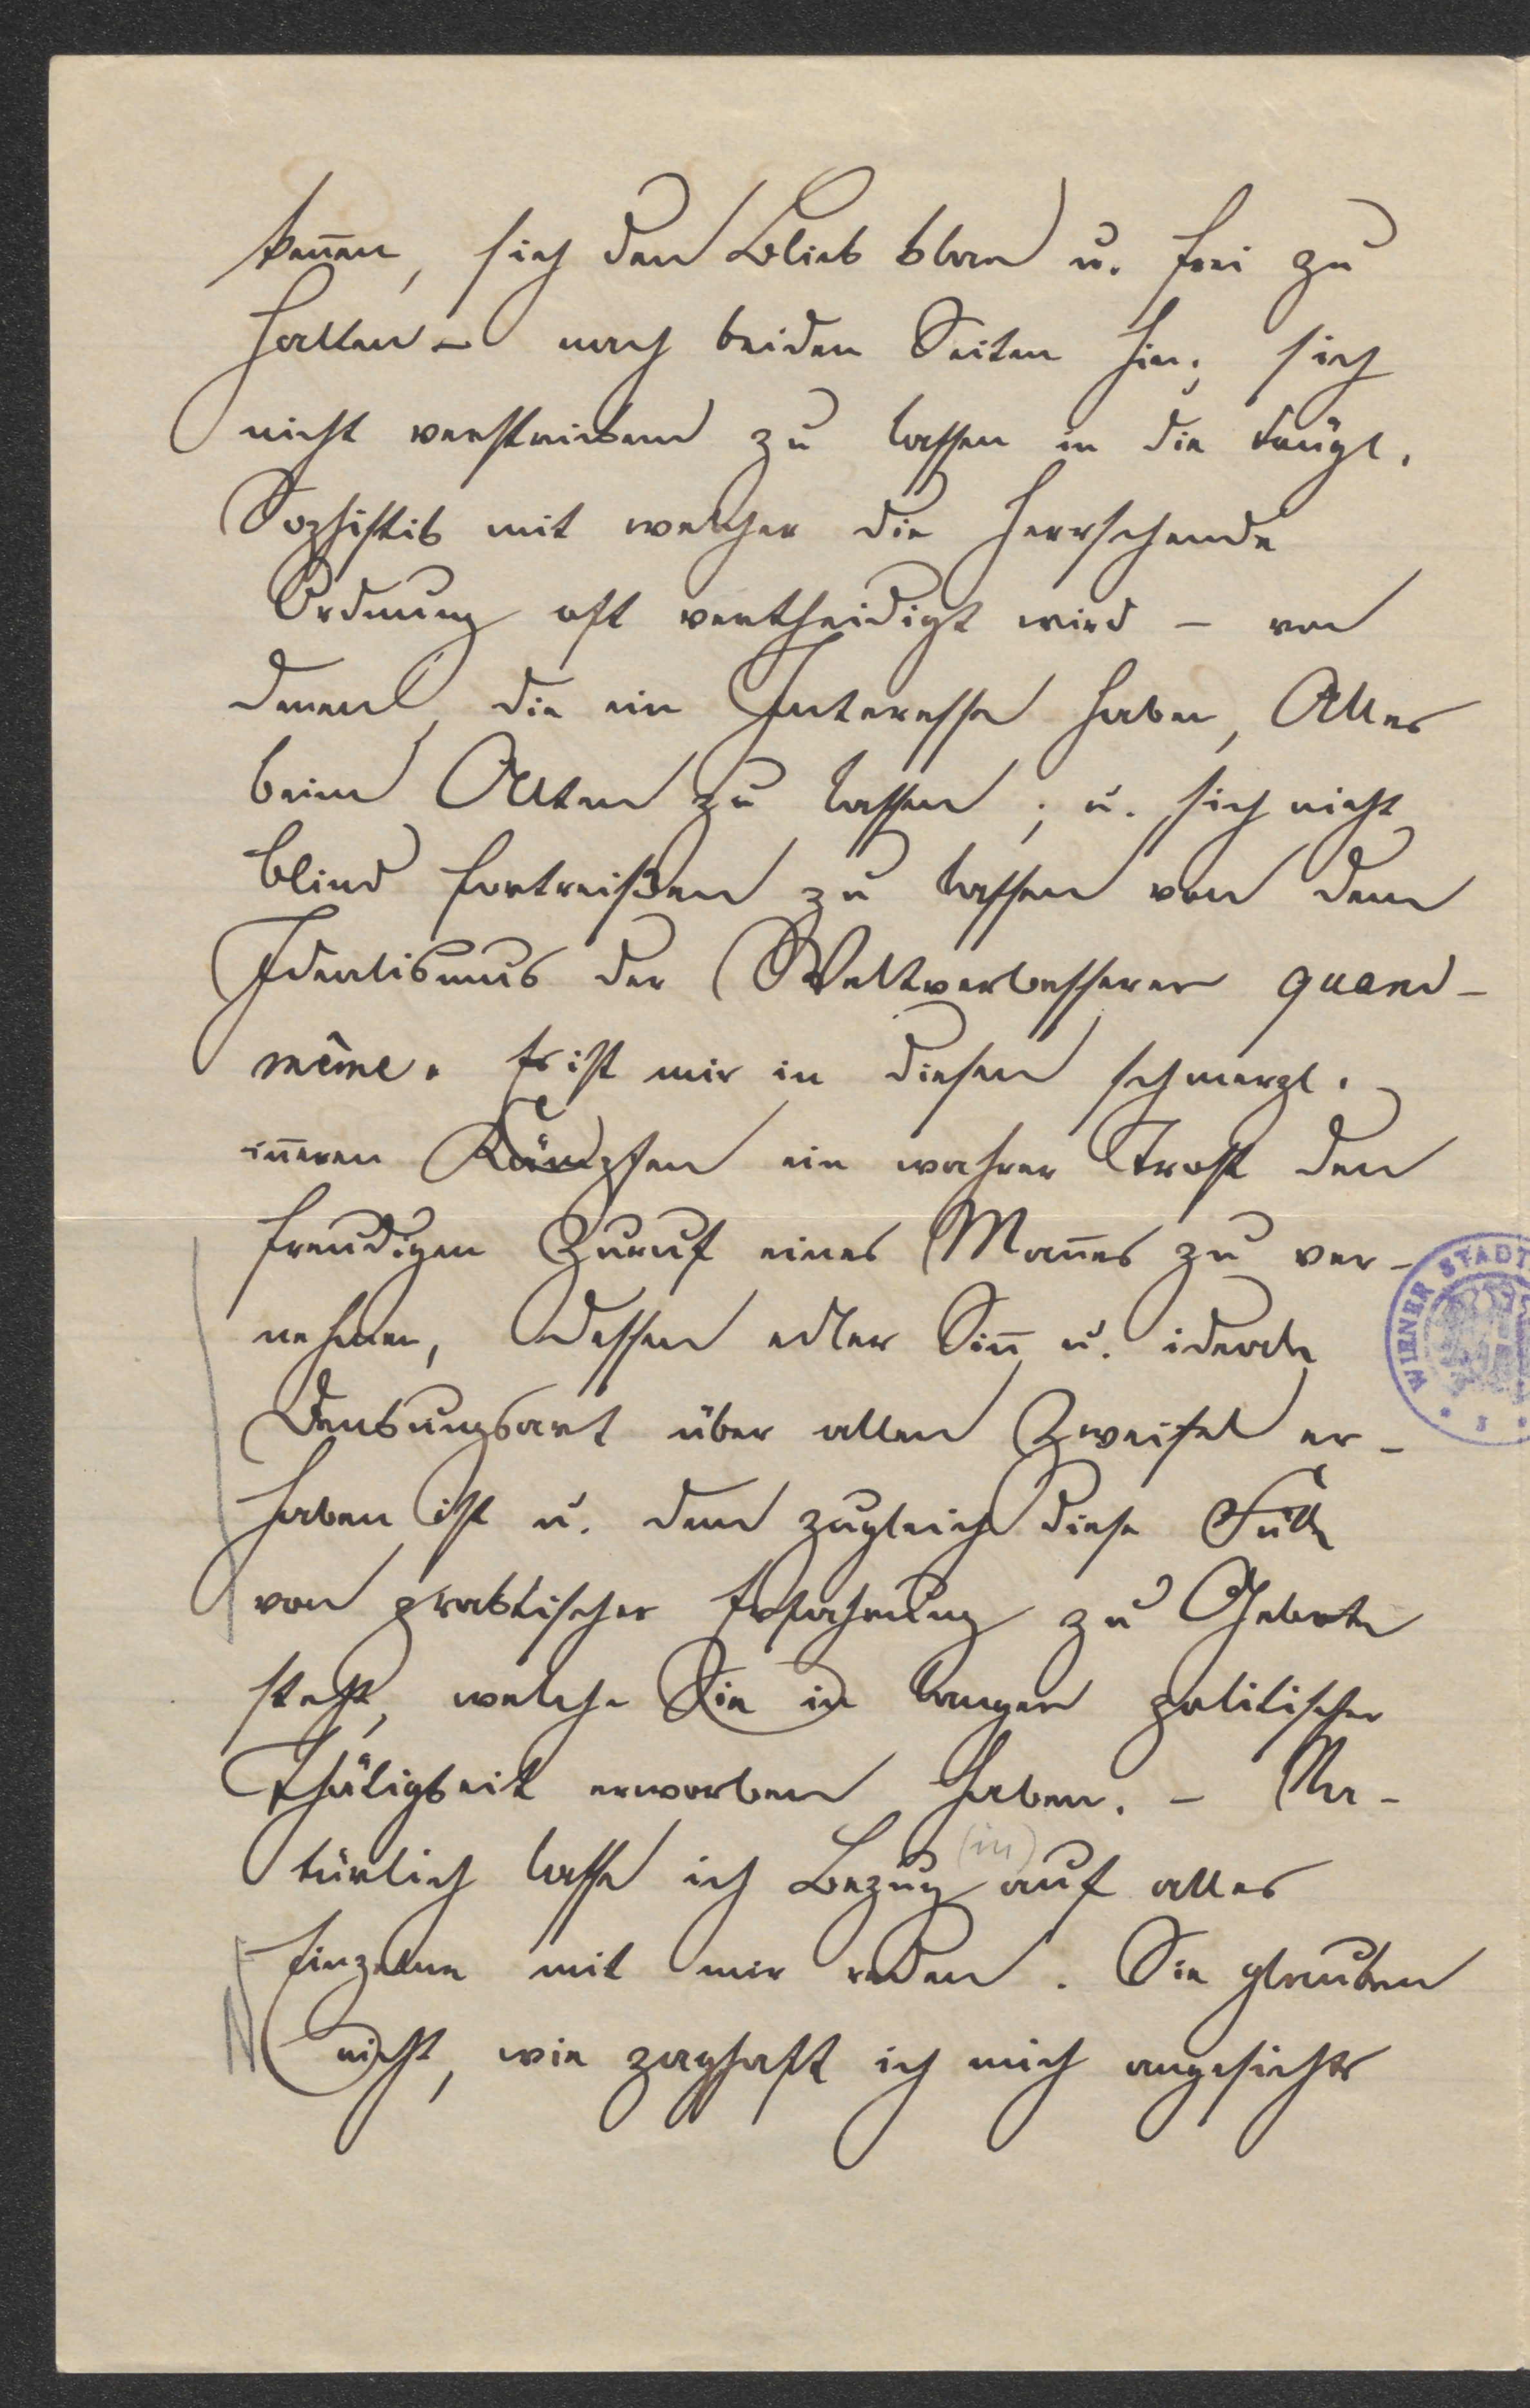 keñen, sich den Blick klar u. frei zu
halten – nach beiden Seiten hin; sich
nicht verstricken zu lassen in die trügl.
Sophistik mit welcher die herrschende
Ordnung oft vertheidigt wird – von
denen, die ein Interesse haben, Alles
beim Alten zu lassen; u. sich nicht
blind fortreißen zu lassen von dem
Idealismus der Weltverbesserer quand-
même. Es ist mir in diesen schmerzl.
iñeren Kämpfen ein wahrer Trost den
freudigen Zuruf eines Mañes zu ver-
nehmen, dessen edler Siñ u. ideale
Denkungsart über allen Zweifel er-
haben ist u. dem zugleich diese Fülle
von praktischer Erfahrung zu Gebote
steht, welche Sie in langer politischer
Thätigkeit erworben haben. – Na-
türlich lasse ich Bezug (in) auf alles
Einzelne mit mir reden. Sie glauben
nicht, wie zaghaft ich mich angesichts
WIENER STADT